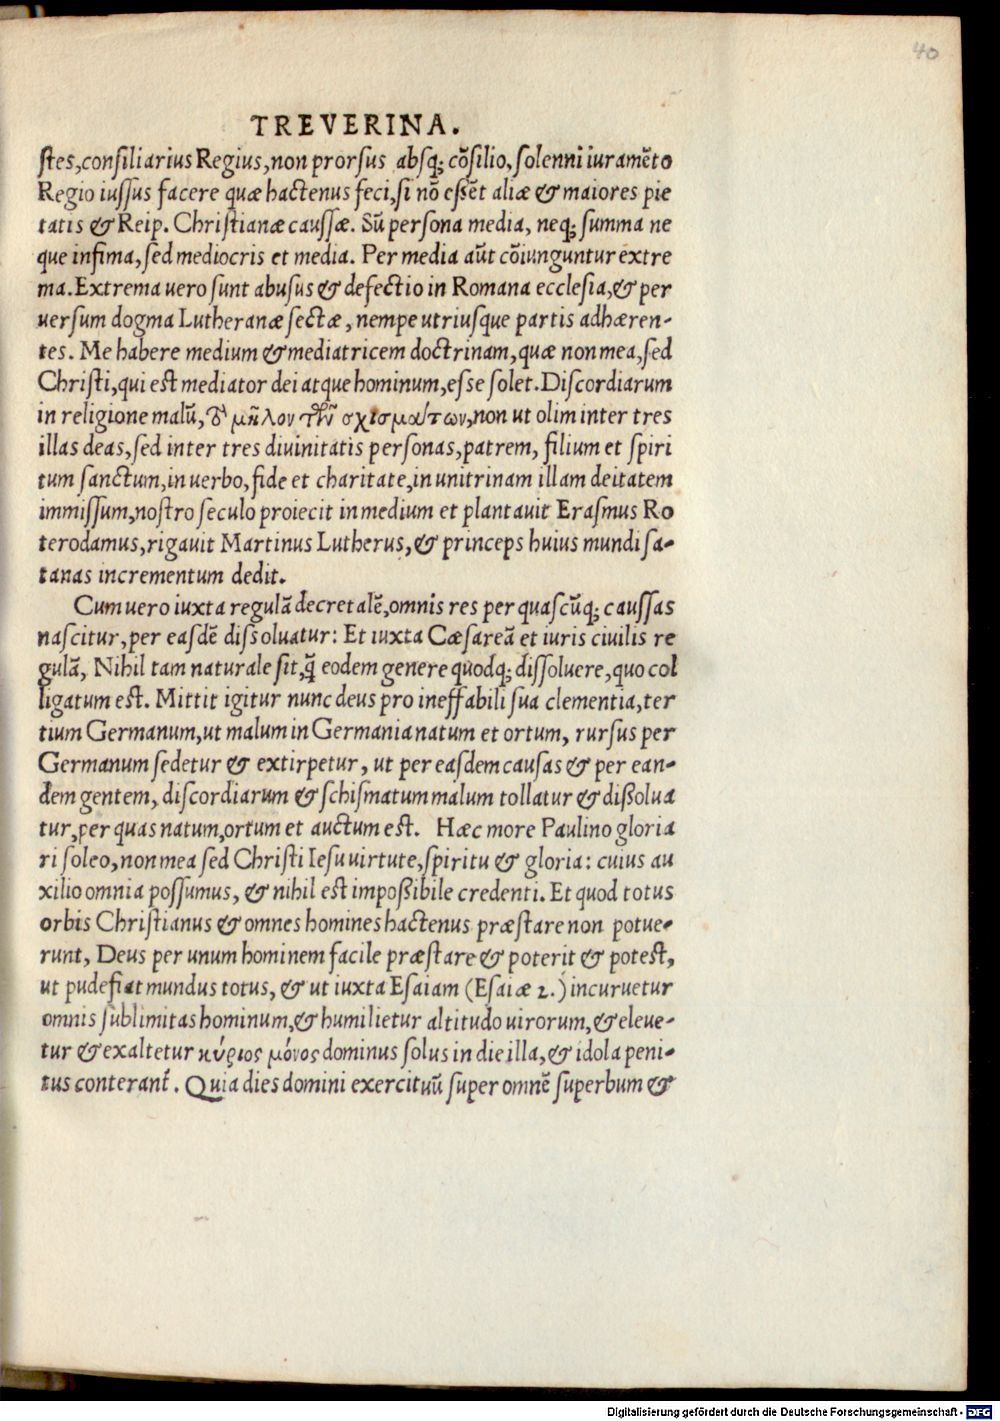 40
TREVERINA.
stes, consiliarius Regius, non prorsus absq; cõsilio, solenni iuramẽto
Regio iussus facere quæ hactenus feci, si nõ eßẽt aliæ & maiores pie
tatis & Reip. Christianæ caussæ. Sũ persona media, neq; summa ne
que infima, sed mediocris et media. Per media aũt cõiunguntur extre
ma. Extrema vero sunt abusus & defectio in Romana ecclesia, & per
uersum dogma Lutheranæ sectæ, nempe utriusque partis adhæren-
tes. Me habere medium & mediatricem doctrinam, quæ non mea, sed
Christi, qui est mediator dei atque hominum, esse solet. Discordiarum
in religione malũ, μῆλον τῶν σχισμάτων, non ut olim inter tres
illas deas, sed inter tres divinitatis personas, patrem, filium et spiri
tum sanctum, in verbo, fide et charitate, in unitrinam illam deitatem
immissum, nostro seculo proiecit in medium et plantavit Erasmus Ro
terodamus, rigavit Martinus Lutherus, & princeps huius mundi sa-
tanas incrementum dedit.
Cum vero iuxta regulã decretalẽ, omnis res per quascũq; caussas
nascitur, per easdẽ dissoluatur: Et iuxta Cæsareã et iuris civilis re
gulã, Nihil tam naturale sit, q̃ eodem genere quodq; dissoluere, quo col
ligatum est. Mittit igitur nunc deus pro ineffabili sua clementia, ter
tium Germanum, ut malum in Germania natum et ortum, rursus per
Germanum sedetur & extirpetur, ut per easdem causas & per ean-
dem gentem, discordiarum & schismatum malum tollatur & dißolua
tur, per quas natum, ortum et auctum est. Hæc more Paulino gloria
ri soleo, non mea sed Christi Iesu virtute, spiritu & gloria: cuius au
xilio omnia possumus, & nihil est impoßibile credenti. Et quod totus
orbis Christianus & omnes homines hactenus præstare non potue-
runt, Deus per unum hominem facile præstare & poterit & potest,
ut pudefiat mundus totus, & ut iuxta Esaiam (Esaiæ 2.) incuruetur
omnis sublimitas hominum, & humilietur altitudo uirorum, & eleue-
tur & exaltetur κύριος μόνος dominus solus in die illa, & idola peni-
tus conterant̃. Quia dies domini exercituũ super omnẽ superbum &
Digitalisierung gefördert durch die Deutsche Forschungsgemeinschaft - DFG